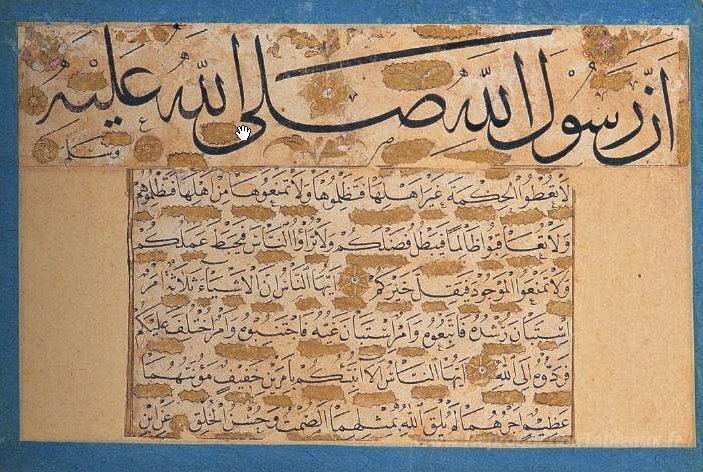 ان رسول الله صلى الله عليه
وسلم
لا تعطوا الحكمة غير اهلها فتظلموها ولا تمنعوها من اهلها فتظلموهم
ولا تعاقبوا ظالما فيبطل فضلكم ولا تراؤا الناس فيحبط عملكم
ولا تمنعوا الموجود فيقل خيركم ايها الناس ان الاشياء ثلاثة امر
استبان رشده فاتبعوه وامر استبان غيه فاجتنبوه وامر اختلف عليكم
فردوه الى الله ايها الناس الا انبئكم بامرين خفيف مؤنتهما
عظيم اجرهما لم يلق الله بمثلهما الصمت وحسن الخلق عن ابن